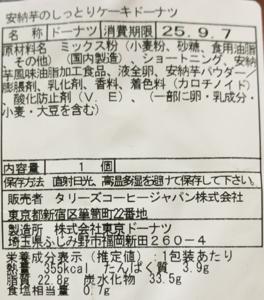 安納芋のしっとりケーキドーナツ
名称 ドーナツ 消費期限 25.9.7
原材料名 ミックス粉(小麦粉、砂糖、食用油脂
、その他)(国内製造)、ショートニング、安納
芋風味油脂加工食品、液全卵、安納芋パウダー/
膨脹剤、乳化剤、香料、着色料(カロチノイド)
、酸化防止剤(V.E)、(一部に卵・乳成分・
小麦・大豆を含む)
内容量 1個
保存方法 直射日光、高温多湿を避けて保存して下さい。
販売者 タリーズコーヒージャパン株式会社
東京都新宿区箪笥町22番地
製造所 株式会社東京ドーナツ
埼玉県ふじみ野市福岡新田260-4
栄養成分表示(推定値):1包装あたり
熱量 355kcal たんぱく質 3.9g
脂質 22.8g 炭水化物 33.5g
食塩相当量 0.7g